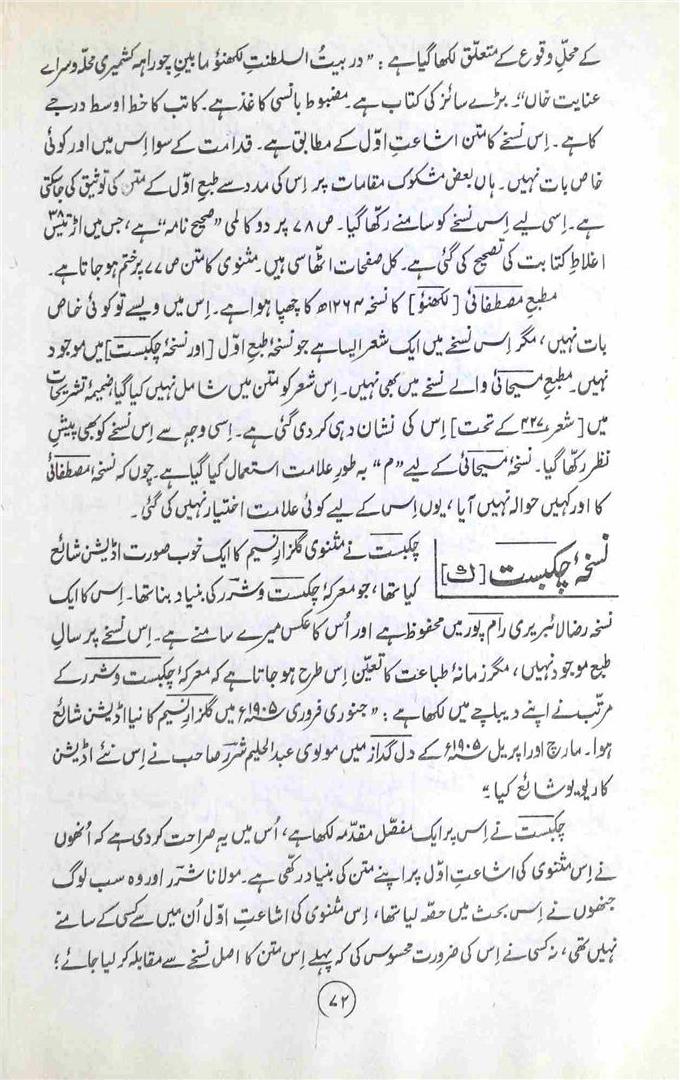 کے محلِّ وقوع کے متعلّق لکھا گیا ہے : "در بیتُ السلطنتِ لکھنؤ مابینِ چوراہہ کشمیری محلّہ و سراے
عنایت خاں"۔ بڑے سائز کی کتاب ہے۔ مضبوط بانسی کاغذ ہے۔ کاتب کا خط اوسط درجے
کا ہے۔ اِس نسخے کا متن اشاعتِ اوّل کے مطابق ہے۔ قدامت کے سوا اِس میں اور کوئی
خاص بات نہیں۔ ہاں بعض مشکوک مقامات پر اِس کی مدد سے طبعِ اوّل کے متن کی توثیق کی جاسکتی
ہے۔ اِسی لیے اِس نسخے کو سامنے رکھا گیا۔ ص ۷۸ پر دو کالمی "صحیح نامہ" ہے، جس میں اڑتیس ۳۸
اغلاطِ کتابت کی تصحیح کی گئی ہے۔ کل صفحات اٹھاسی ہیں۔ مثنوی کا متن ص ۷۷ پر ختم ہو جاتا ہے۔
مطبعِ مصطفائی [لکھنؤ] کا نسخہ ۱۲۶۴ھ کا چھپا ہوا ہے۔ اِس میں ویسے تو کوئی خاص
بات نہیں، مگر اِس نسخے میں ایک شعر ایسا ہے جو نسخۂ طبعِ اوّل [اور نسخۂ چکبست] میں موجود
نہیں۔ مطبعِ مسیحائی والے نسخے میں بھی نہیں۔ اِس شعر کو متن میں شامل نہیں کیا گیا، ضمیمۂ تشریحات
میں [شعر ۴۲۷ کے تحت] اِس کی نشان دہی کردی گئی ہے۔ اِسی وجہ سے اِس نسخے کو بھی پیشِ
نظر رکھا گیا۔ نسخۂ مسیحائی کے لیے "م" بہ طورِ علامت استعمال کیا گیا ہے۔ چوں کہ نسخۂ مصطفائی
کا اور کہیں حوالہ نہیں آیا، یوں اِس کے لیے کوئی علامت اختیار نہیں کی گئی۔
نسخۂ چکبست [ک] چکبست نے مثنوی گلزارِ نسیم کا ایک خوب صورت اڈیشن شائع
کیا تھا، جو معرکۂ چکبست و شرر کی بنیاد بنا تھا۔ اِس کا ایک
نسخہ رضا لائبریری رام پور میں محفوظ ہے اور اُس کا عکس میرے سامنے ہے۔ اِس نسخے پر سالِ
طبع موجود نہیں، مگر زمانۂ طباعت کا تعیّن اِس طرح ہو جاتا ہے کہ معرکۂ چکبست و شرر کے
مرتّب نے اپنے دیباچے میں لکھا ہے : "جنوری فروری ۱۹۰۵ء میں گلزارِ نسیم کا نیا اڈیشن شائع
ہوا۔ مارچ اور اپریل ۱۹۰۵ء کے دل گداز میں مولوی عبدالحلیم شرر صاحب نے اِس نئے اڈیشن
کا ریویو شائع کیا"۔
چکبست نے اِس پر ایک مفصّل مقدّمہ لکھا ہے، اُس میں یہ صراحت کردی ہے کہ اُنھوں
نے اِس مثنوی کی اشاعتِ اوّل پر اپنے متن کی بنیاد رکھی ہے۔ مولانا شرر اور وہ سب لوگ
جنھوں نے اِس بحث میں حصّہ لیا تھا، اِس مثنوی کی اشاعتِ اوّل اُن میں سے کسی کے سامنے
نہیں تھی، نہ کسی نے اِس کی ضرورت محسوس کی کہ پہلے اِس متن کا اصل نسخے سے مقابلہ کر لیا جائے؛
۷۲